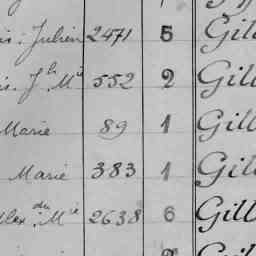 is. Julien 2471 5 Gil
is. Jh Mie 552 2 Gill
Marie 89 1 Gill
Marie 383 1 Gill
Alex. du Mie 2638 6 Gill